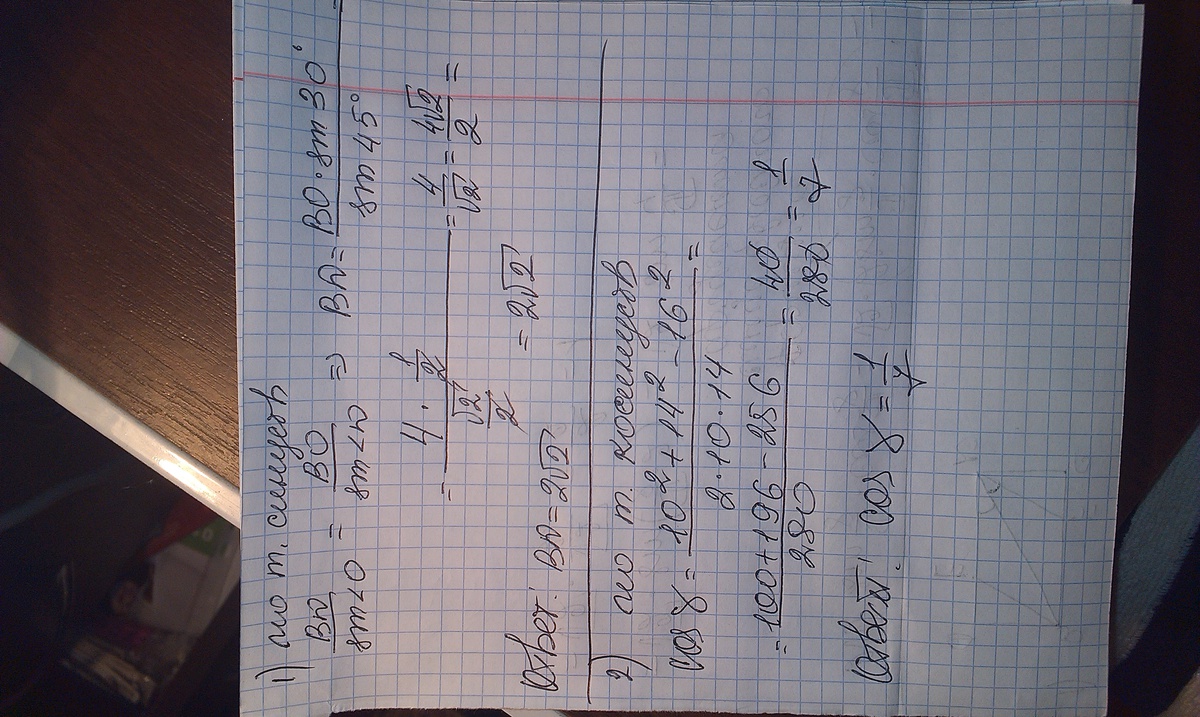 1) по т. синусов
BN / sin∠O = BO / sin∠N ⇒ BN = BO · sin 30° / sin 45°
= 4 · 1/2 / √2/2 = 4/√2 = 4√2/2 =
= 2√2
Ответ: BN = 2√2
2) по т. косинусов
cos γ = 10² + 14² - 16² / 2 · 10 · 14 =
= 100 + 196 - 256 / 280 = 40/280 = 1/7
Ответ: cos γ = 1/7